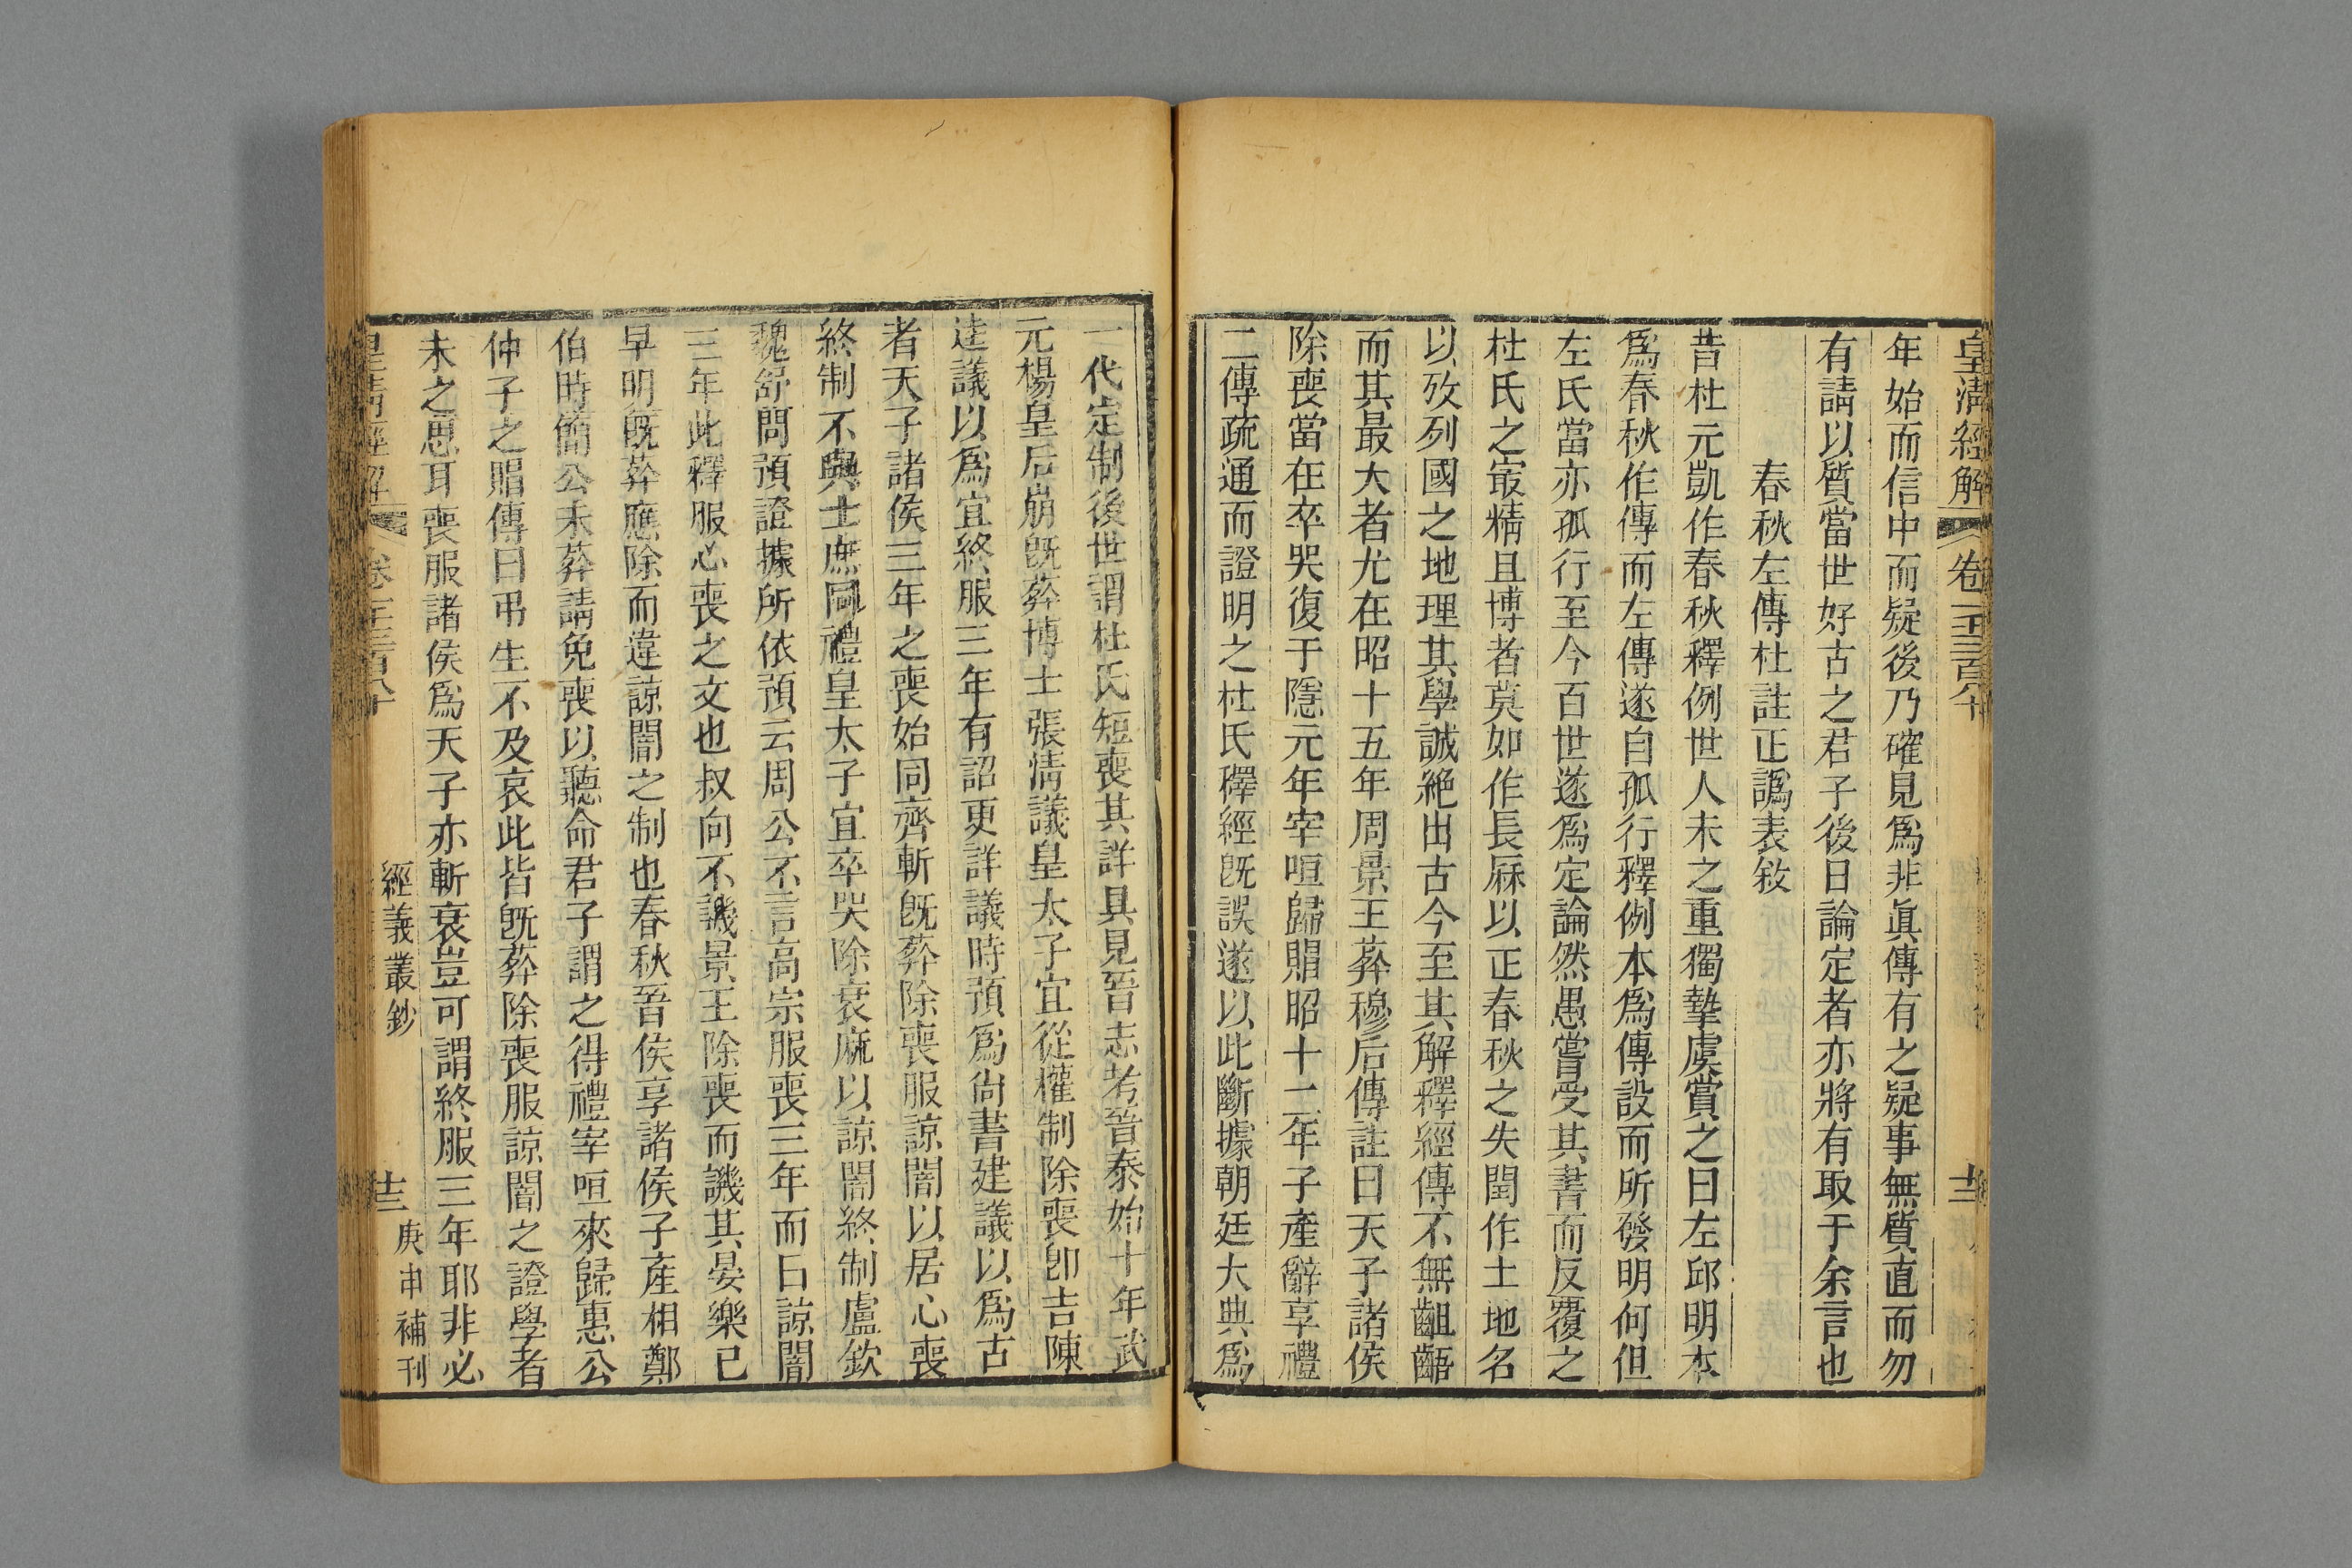 皇清經解 卷一千三百八十 十二
年始而信中而疑後乃確見爲非眞傳有之疑事無質直而勿
有請以質當世好古之君子後日論定者亦將有取于余言也
春秋左傳杜註正譌表敘
昔杜元凱作春秋釋例世人未之重獨摯虞賞之曰左邱明本
爲春秋作傳而左傳遂自孤行釋例本爲傳設而所發明何但
左氏當亦孤行至今百世遂爲定論然愚嘗受其書而反覆之
杜氏之㝡精且博者莫如作長厤以正春秋之失閏作土地名
以攷列國之地理其學誠絶出古今至其解釋經傳不無齟齬
而其最大者尤在昭十五年周景王葬穆后傳註曰天子諸侯
除喪當在卒哭復于隱元年宰咺歸賵昭十二年子產辭享禮
二傳疏通而證明之杜氏釋經旣誤遂以此斷據朝廷大典爲
一代定制後世謂杜氏短喪其詳具見晉志考晉泰始十年武
元楊皇后崩旣葬博士張情議皇太子宜從權制除喪卽吉陳
逵議以爲宜終服三年有詔更詳議時預爲尙書建議以爲古
者天子諸侯三年之喪始同齊斬旣葬除喪服諒闇以居心喪
終制不與士庶同禮皇太子宜卒哭除衰麻以諒闇終制盧欽
魏舒問預證據所依預云周公不言高宗服喪三年而曰諒闇
三年此釋服心喪之文也叔向不譏景王除喪而譏其晏樂已
早明旣葬應除而違諒闇之制也春秋晉侯享諸侯子產相鄭
伯時簡公未葬請免喪以聽命君子謂之得禮宰咺來歸惠公
仲子之賵傳曰弔生不及哀此皆旣葬除喪服諒闇之證學者
未之思耳喪服諸侯爲天子亦斬衰豈可謂終服三年耶非必
皇清經解 卷一千三百八十 經義叢鈔 十三 庚申補刊